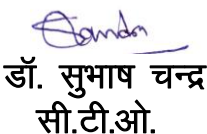 डॉ. सुभाष चन्द्र
सी.टी.ओ.